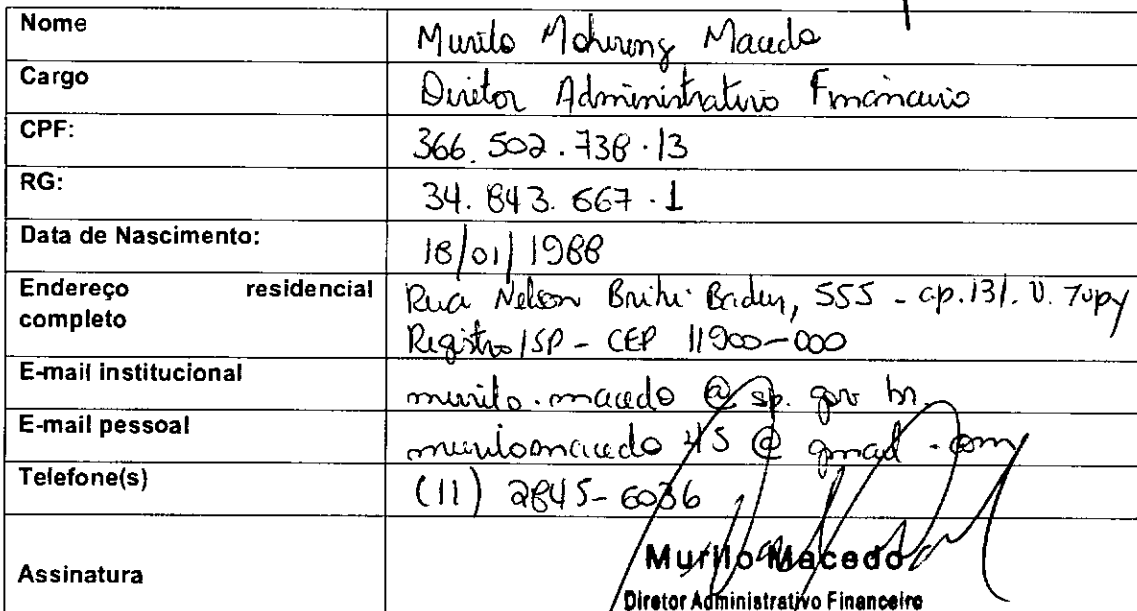 Nome Murilo Mohring Macedo
Cargo Diretor Administrativo Financeiro
CPF: 366.502.738-13
RG: 34.843.667-1
Data de Nascimento: 18/01/1988
Endereço residencial Rua Nelson Brihi Badur, 555 - ap. 131. V. Tupy
completo Registro/SP - CEP 11900-000
E-mail institucional murilo.macedo@sp.gov.br
E-mail pessoal murilomacedo45@gmail.com
Telefone(s) (11) 2845-6036
Assinatura Murilo Macedo
Diretor Administrativo Financeiro